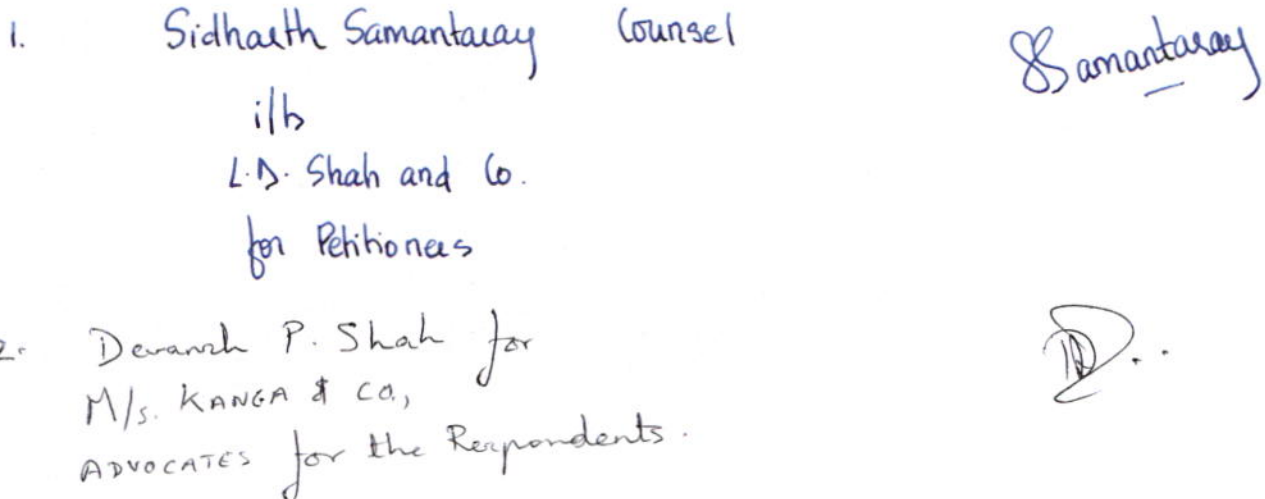 1. Sidharth Samantaray Counsel SSamantaray
i/b
L.D. Shah and Co.
for Petitioners
2. Devansh P. Shah for
M/s. KANGA & CO.,
ADVOCATES for the Respondents.